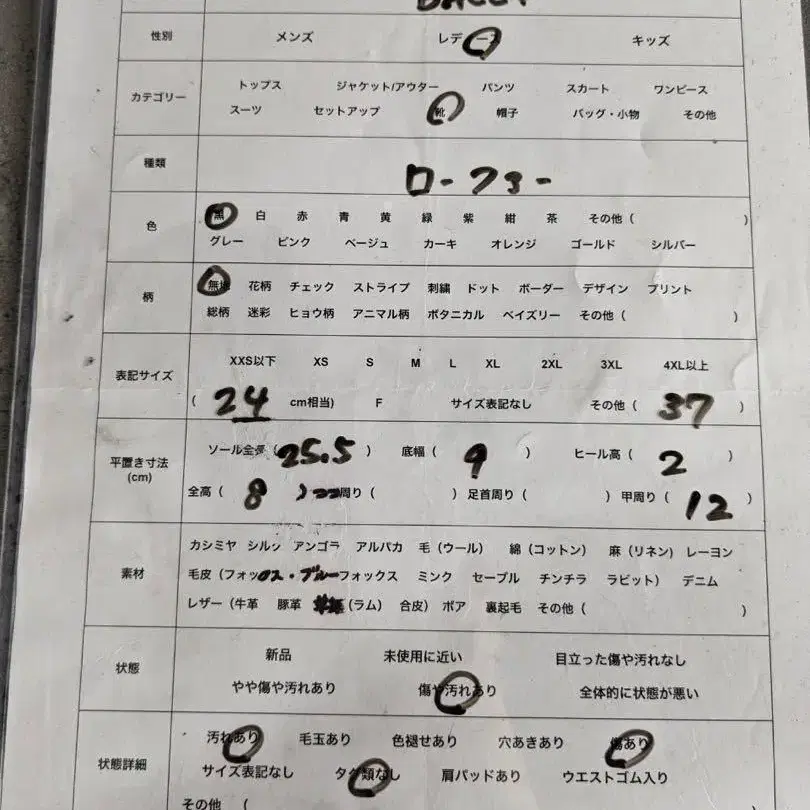 BALLY
性別 メンズ レディース キッズ
カテゴリー トップス ジャケット/アウター パンツ スカート ワンピース
スーツ セットアップ 靴 帽子 バッグ・小物 その他
種類 ローファー
色 黒 白 赤 青 黄 緑 紫 紺 茶 その他 ( )
グレー ピンク ベージュ カーキ オレンジ ゴールド シルバー
柄 無地 花柄 チェック ストライプ 刺繍 ドット ボーダー デザイン プリント
総柄 迷彩 ヒョウ柄 アニマル柄 ボタニカル ペイズリー その他 ( )
表記サイズ XXS以下 XS S M L XL 2XL 3XL 4XL以上
( 24 cm相当) F サイズ表記なし その他 ( 37 )
平置き寸法 (cm) ソール全長 ( 25.5 ) 底幅 ( 9 ) ヒール高 ( 2 )
全高 ( 8 ) 周り ( ) 足首周り ( ) 甲周り ( 12 )
素材 カシミヤ シルク アンゴラ アルパカ 毛 (ウール) 綿 (コットン) 麻 (リネン) レーヨン
毛皮 (フォックス・ブルーフォックス ミンク セーブル チンチラ ラビット) デニム
レザー (牛革 豚革 (ラム) 合皮) ボア 裏起毛 その他 ( )
状態 新品 未使用に近い 目立った傷や汚れなし
やや傷や汚れあり 傷や汚れあり 全体的に状態が悪い
状態詳細 汚れあり 毛玉あり 色褪せあり 穴あきあり 傷あり
サイズ表記なし タグ類なし 肩パッドあり ウエストゴム入り
その他 (